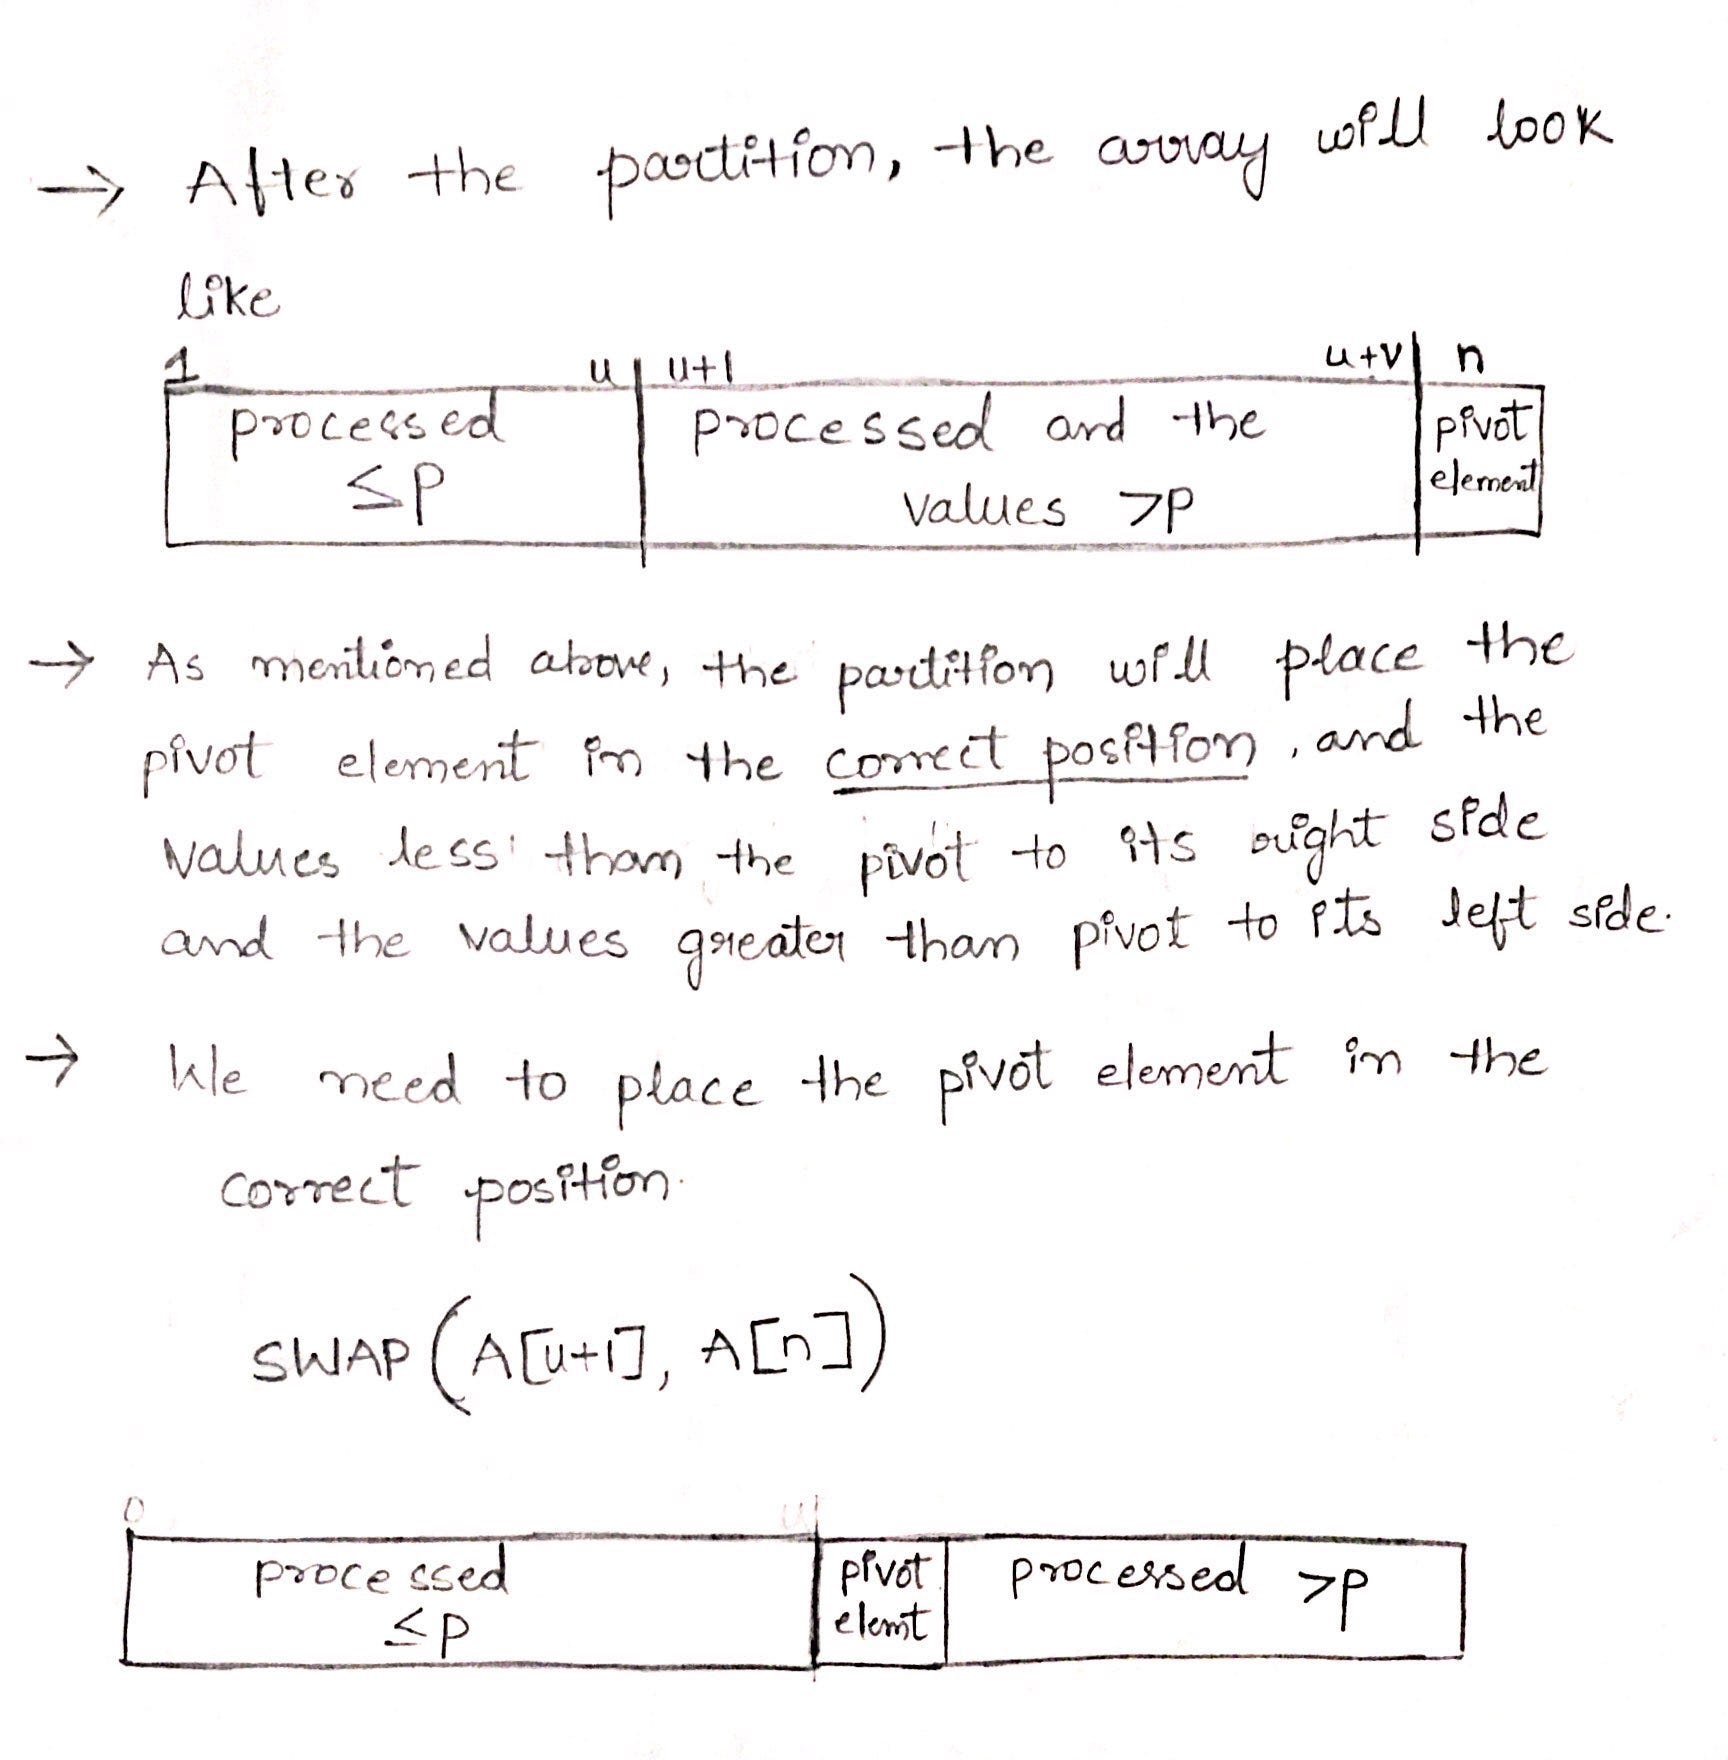 → After the partition, the array will look
like
1 u u+1 u+v n
processed processed and the pivot
≤P values >P element
→ As mentioned above, the partition will place the
pivot element in the correct position, and the
values less than the pivot to its right side
and the values greater than pivot to its left side.
→ We need to place the pivot element in the
correct position.
SWAP (A[u+1], A[n])
0 u
processed pivot processed >P
≤P elemt